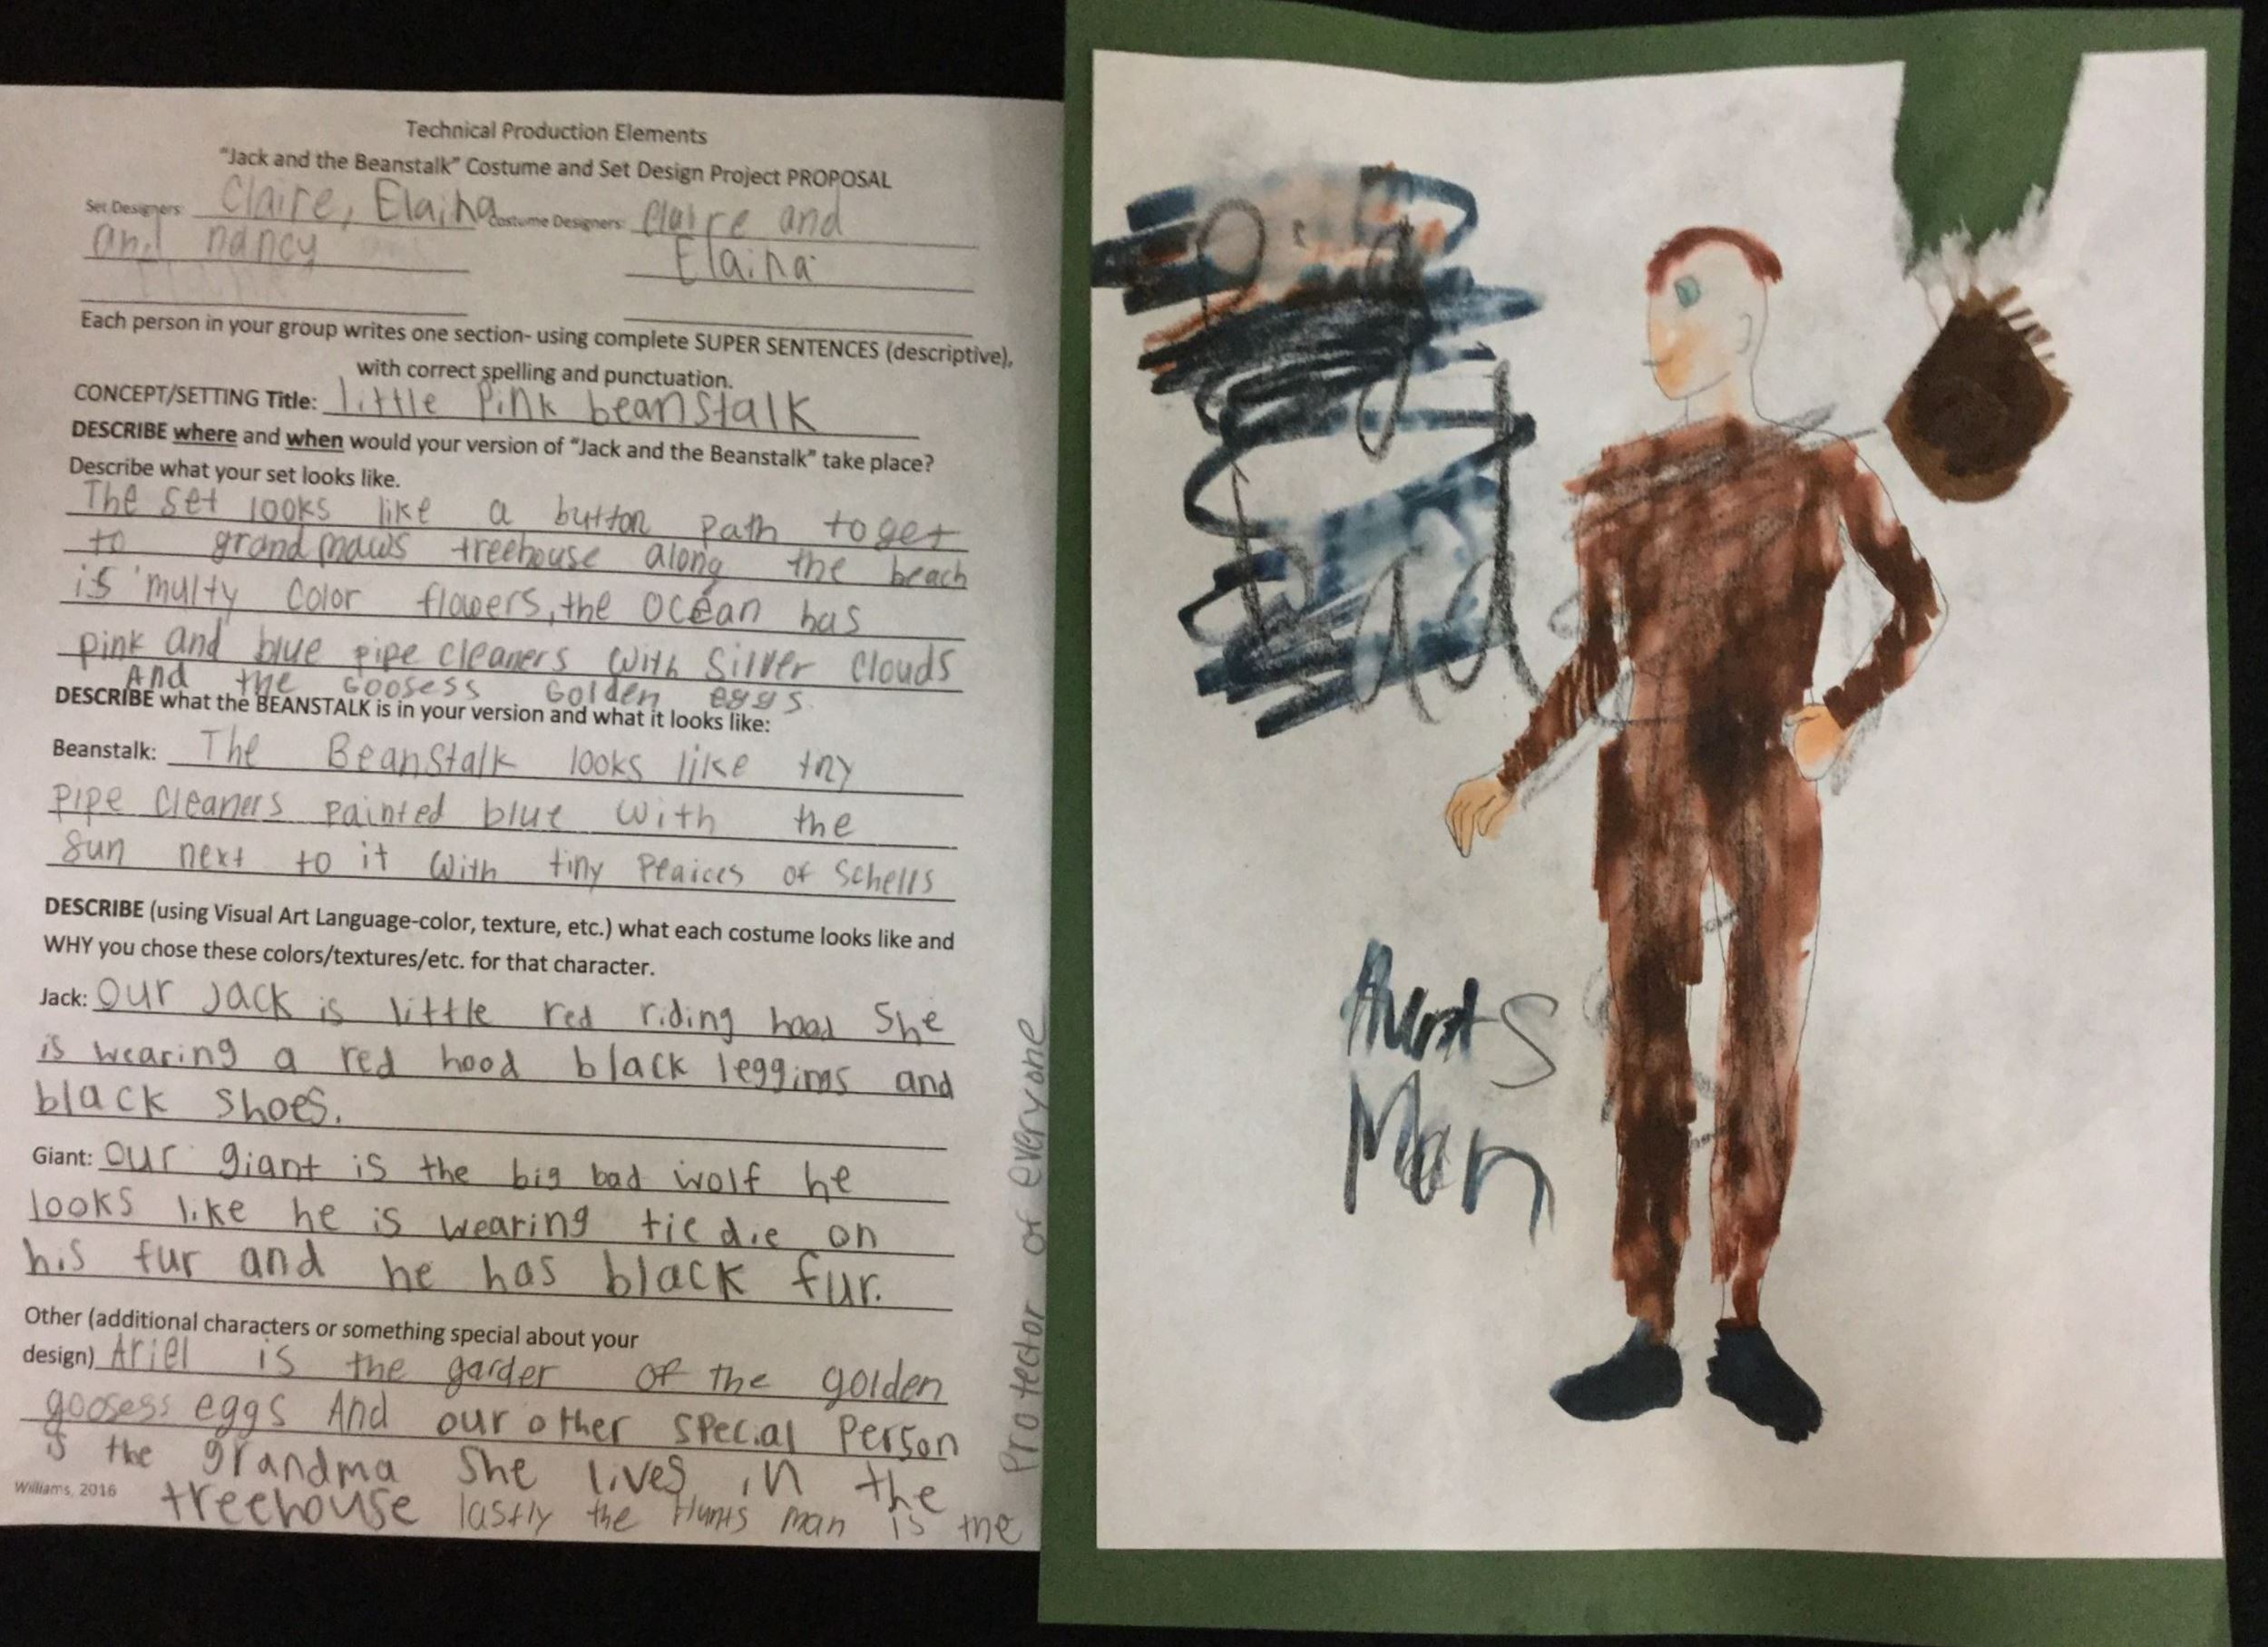 Technical Production Elements
"Jack and the Beanstalk" Costume and Set Design Project PROPOSAL
Set Designers: Claire, Elaina Costume Designers: Claire and
and nancy Elaina
Each person in your group writes one section- using complete SUPER SENTENCES (descriptive),
with correct spelling and punctuation.
CONCEPT/SETTING Title: little Pink beanstalk
DESCRIBE where and when would your version of "Jack and the Beanstalk" take place?
Describe what your set looks like.
The set looks like a button path to get
to grandmaws treehouse along the beach
is multy color flowers, the ocean has
pink and blue pipe cleaners with Silver clouds
And the Goosess Golden eggs.
DESCRIBE what the BEANSTALK is in your version and what it looks like:
Beanstalk: The Beanstalk looks like tny
pipe cleaners painted blue with the
sun next to it with tiny peaices of schells
DESCRIBE (using Visual Art Language-color, texture, etc.) what each costume looks like and
WHY you chose these colors/textures/etc. for that character.
Jack: Our Jack is little red riding hood She
is wearing a red hood black leggings and
black shoes.
Giant: Our giant is the big bad wolf he
looks like he is wearing tie die on
his fur and he has black fur.
Other (additional characters or something special about your
design) Ariel is the garder of the golden
goosess eggs And our other special Person
is the grandma She lives in the
treehouse lastly the Hunts man is the
Protector of everyone
Williams, 2016
Big
bad
Hunts
Man